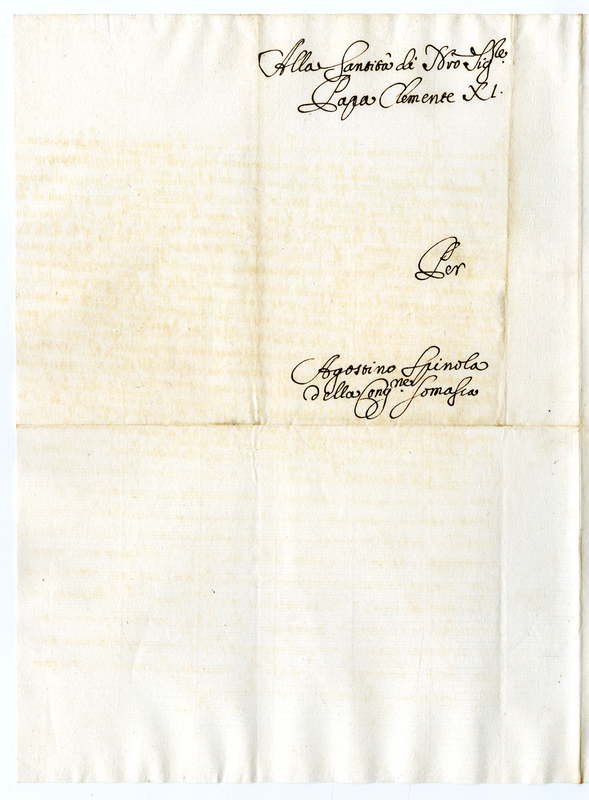 Alla Santità di Nrõ Sigre.
Papa Clemente XI.
Per
Agostino Spinola
della Congne. Somasca